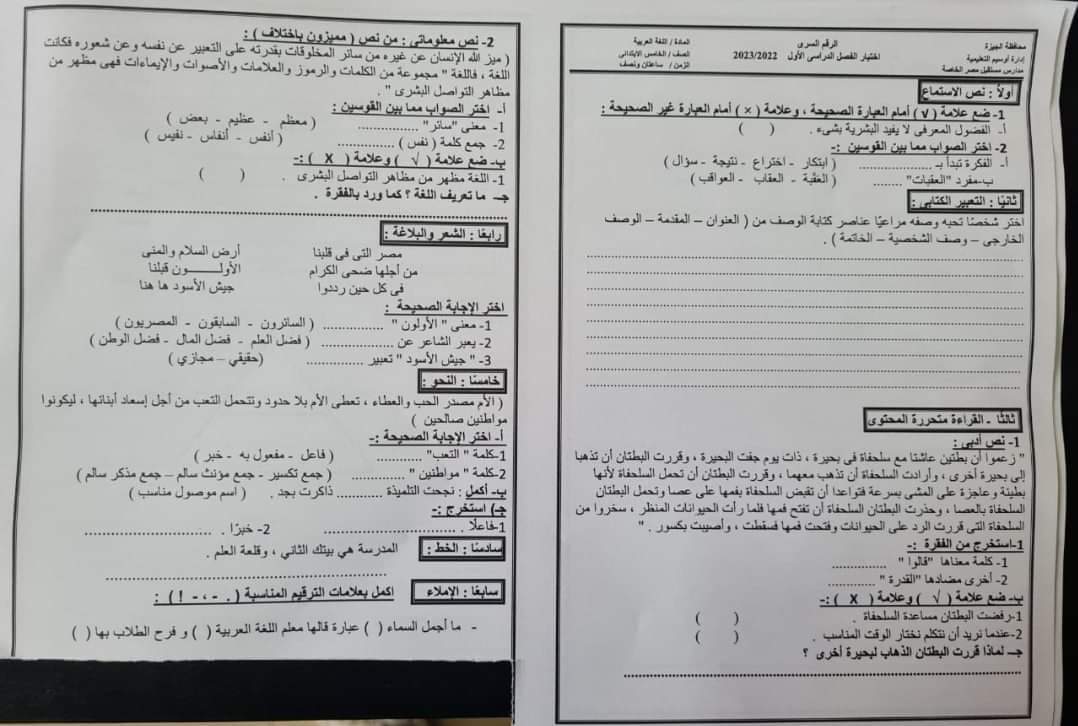 محافظة الجيزة
إدارة أوسيم التعليمية
مدارس مستقبل مصر الخاصة
الرقم السرى
اختبار الفصل الدراسى الأول 2023/2022
المادة / اللغة العربية
الصف / الخامس الابتدائى
الزمن / ساعتان ونصف
أولاً : نص الاستماع
1- ضع علامة ( √ ) أمام العبارة الصحيحة ، وعلامة ( × ) أمام العبارة غير الصحيحة :
أ- الفضول المعرفى لا يفيد البشرية بشىء . ( )
2- اختر الصواب مما بين القوسين :-
أ- الفكرة تبدأ بـ ................ ( ابتكار - اختراع - نتيجة - سؤال )
ب-مفرد "العقبات" ....... ( العقبة - العقاب - العواقب )
ثانيًا : التعبير الكتابى :
اختر شخصًا تحبه وصفه مراعيًا عناصر كتابة الوصف من ( العنوان – المقدمة – الوصف
الخارجى – وصف الشخصية – الخاتمة ) .
ثالثًا - القراءة متحررة المحتوى
1- نص أدبى :
" زعموا أن بطتين عاشتا مع سلحفاة فى بحيرة ، ذات يوم جفت البحيرة ، وقررت البطتان أن تذهبا
إلى بحيرة أخرى ، وأرادت السلحفاة أن تذهب معهما ، وقررت البطتان أن تحمل السلحفاة لأنها
بطيئة وعاجزة على المشى بسرعة فتواعدا أن تقبض السلحفاة بفمها على عصا وتحمل البطتان
السلحفاة بالعصا ، وحذرت البطتان السلحفاة أن تفتح فمها فلما رأت الحيوانات المنظر ، سخروا من
السلحفاة التى قررت الرد على الحيوانات وفتحت فمها فسقطت ، وأصيبت بكسور . "
1-استخرج من الفقرة :-
1- كلمة معناها "قالوا" ..............
2- أخرى مضادها "القدرة" ............
ب- ضع علامة ( √ ) وعلامة ( X ) :-
1-رفضت البطتان مساعدة السلحفاة . ( )
2-عندما نريد أن نتكلم نختار الوقت المناسب . ( )
جـ- لماذا قررت البطتان الذهاب لبحيرة أخرى ؟
2- نص معلوماتى : من نص ( مميزون باختلاف ) :
( ميز الله الإنسان عن غيره من سائر المخلوقات بقدرته على التعبير عن نفسه وعن شعوره فكانت
اللغة ، فاللغة " مجموعة من الكلمات والرموز والعلامات والأصوات والإيماءات فهى مظهر من
مظاهر التواصل البشرى " .
أ- اختر الصواب مما بين القوسين :
1- معنى "سائر" ................ ( معظم - عظيم - بعض )
2- جمع كلمة ( نفس ) ............... ( أنفس - أنفاس - نفيس )
ب- ضع علامة ( √ ) وعلامة ( X ) :-
1- اللغة مظهر من مظاهر التواصل البشرى . ( )
جـ- ما تعريف اللغة ؟ كما ورد بالفقرة .
رابعًا : الشعر والبلاغة :
مصر التى فى قلبنا أرض السلام والمنى
من أجلها ضحى الكرام الأولـــــون قبلنا
فى كل حين رددوا جيش الأسود ها هنا
اختر الإجابة الصحيحة :
1- معنى " الأولون " ................ ( السائرون - السابقون - المصريون )
2- يعبر الشاعر عن .................. ( فضل العلم - فضل المال - فضل الوطن )
3- " جيش الأسود " تعبير .............. (حقيقي – مجازي )
خامسًا : النحو :
( الأم مصدر الحب والعطاء ، تعطى الأم بلا حدود وتتحمل التعب من أجل إسعاد أبنائها ، ليكونوا
مواطنين صالحين )
أ- اختر الإجابة الصحيحة :-
1-كلمة " التعب" ............ ( فاعل - مفعول به - خبر )
2-كلمة " مواطنين " ............... ( جمع تكسير - جمع مؤنث سالم – جمع مذكر سالم )
ب- أكمل : نجحت التلميذة ............ ذاكرت بجد . ( اسم موصول مناسب )
جـ) استخرج :-
1-فاعلًا . .................. 2- خبرًا . ..................
سادسًا : الخط : المدرسة هي بيتك الثاني ، وقلعة العلم .
سابعًا : الإملاء اكمل بعلامات الترقيم المناسبة ( . - ، - ! ) :
- ما أجمل السماء ( ) عبارة قالها معلم اللغة العربية ( ) و فرح الطلاب بها ( )